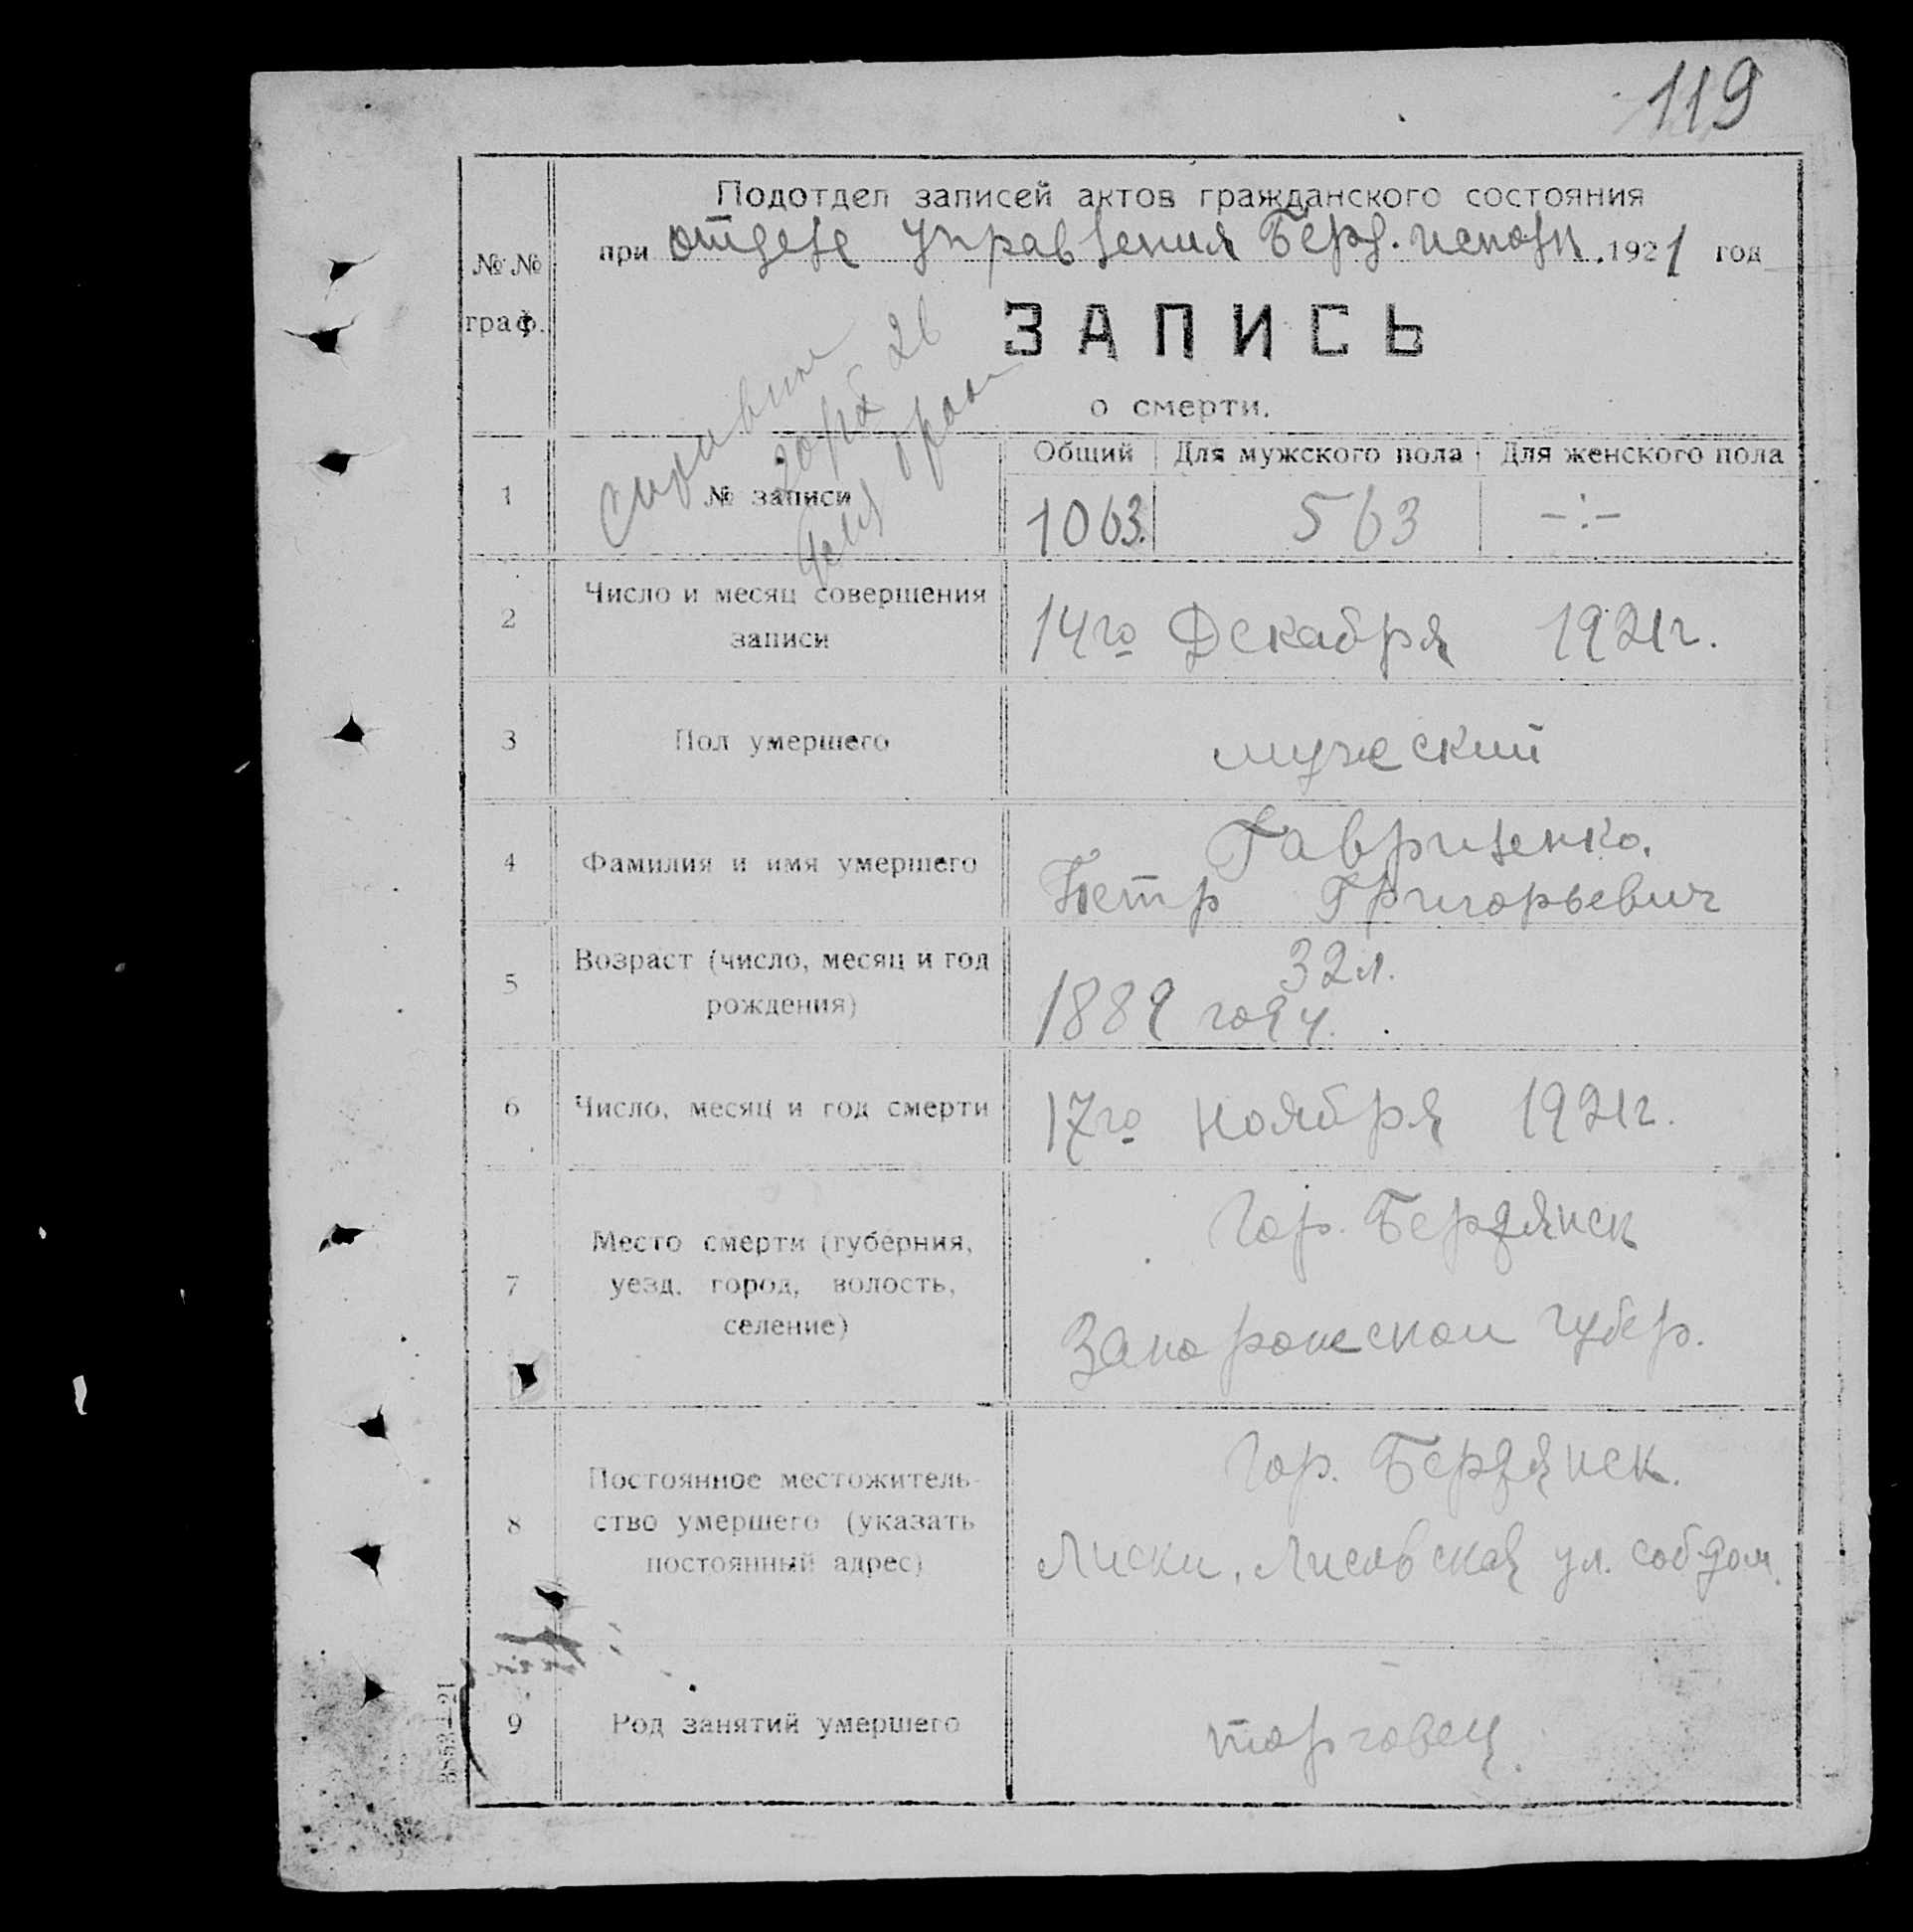 119
Подотдел записей актов гражданского состояния
при отделе управления Берд. исполк. 1921 год
№ №
граф.
ЗАПИСЬ
о смерти.
Общий Для мужского пола Для женского пола
1 № записи 1063. 563 -:-
2 Число и месяц совершения
записи
14го Декабря 1921г.
3 Пол умершего мужеский
4 Фамилия и имя умершего
Гавриленко.
Петр Григорьевич
5 Возраст (число, месяц и год
рождения)
32 л.
1889 году.
6 Число, месяц и год смерти 17го ноября 1921г.
7 Место смерти (губерния,
уезд, город, волость,
селение)
Гор. Бердянск
Запорожской губер.
8 Постоянное местожитель-
ство умершего (указать
постоянный адрес)
Гор. Бердянск.
Лиски, Лисковская ул. соб. дом.
9 Род занятий умершего торговец.
3853—21